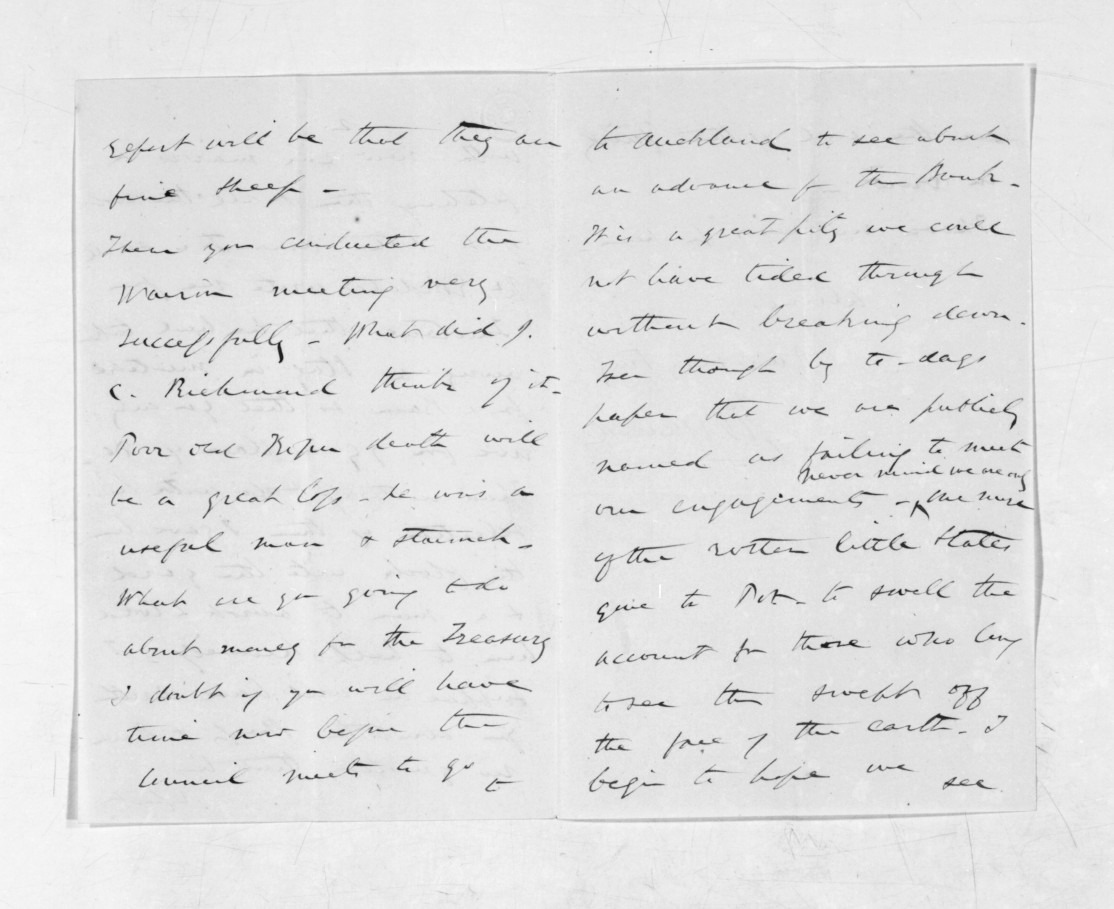 expect will be that they are
fine sheep -
Then you conducted the
Wairoa meeting very
successfully - What did J.
C. Richmond think of it -
Poor old death will
be a great loss - he was a
useful man & staunch -
What are you going to do
about money for the Treasury
I doubt if you will have
time now before the
Council meets to go to
to Auckland to see about
an advance f the Bank -
It is a great pity we could
not have tided through
without breaking down -
I see though by to-days
paper that we are publicly
named as failing to meet
our engagements - never mind we are only one more
of the rotten little States
gone to Pot - to swell the
account for those who long
to see them swept off
the face of the earth - I
begin to hope we see